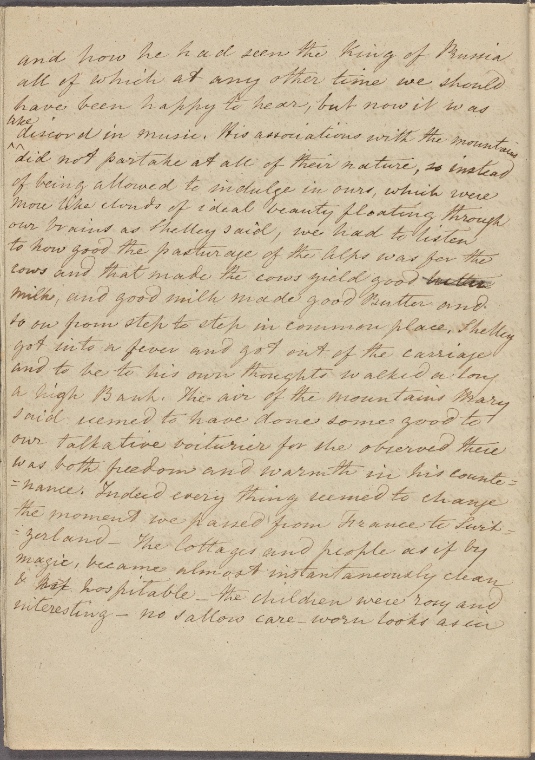 and how he had seen the King of Prussia
all of which at any other time we should
have been happy to hear, but now it was
like
discord in music. His associations with the mountains
did not partake at all of their nature, so instead
of being allowed to indulge in ours, which were
more like clouds of ideal beauty floating through
our brains as Shelley said, we had to listen
to how good the pasturage of the Alps was for the
cows and that made the cows yield good butter
milk, and good milk made good Butter and
so on from step to step in common place. Shelley
got into a fever and got out of the carriage
and to be to his own thoughts walked along
a high Bank. The air of the mountains Mary
said seemed to have done some good to
our talkative voiturier for she observed there
was both freedom and warmth in his counte=
=nance. Indeed every thing seemed to change
the moment we passed from France to Swit=
=zerland – The Cottages and people as if by
magic, became almost instantaneously clean
& hospitable – the children were rosy and
interesting – no sallow care-worn looks as in